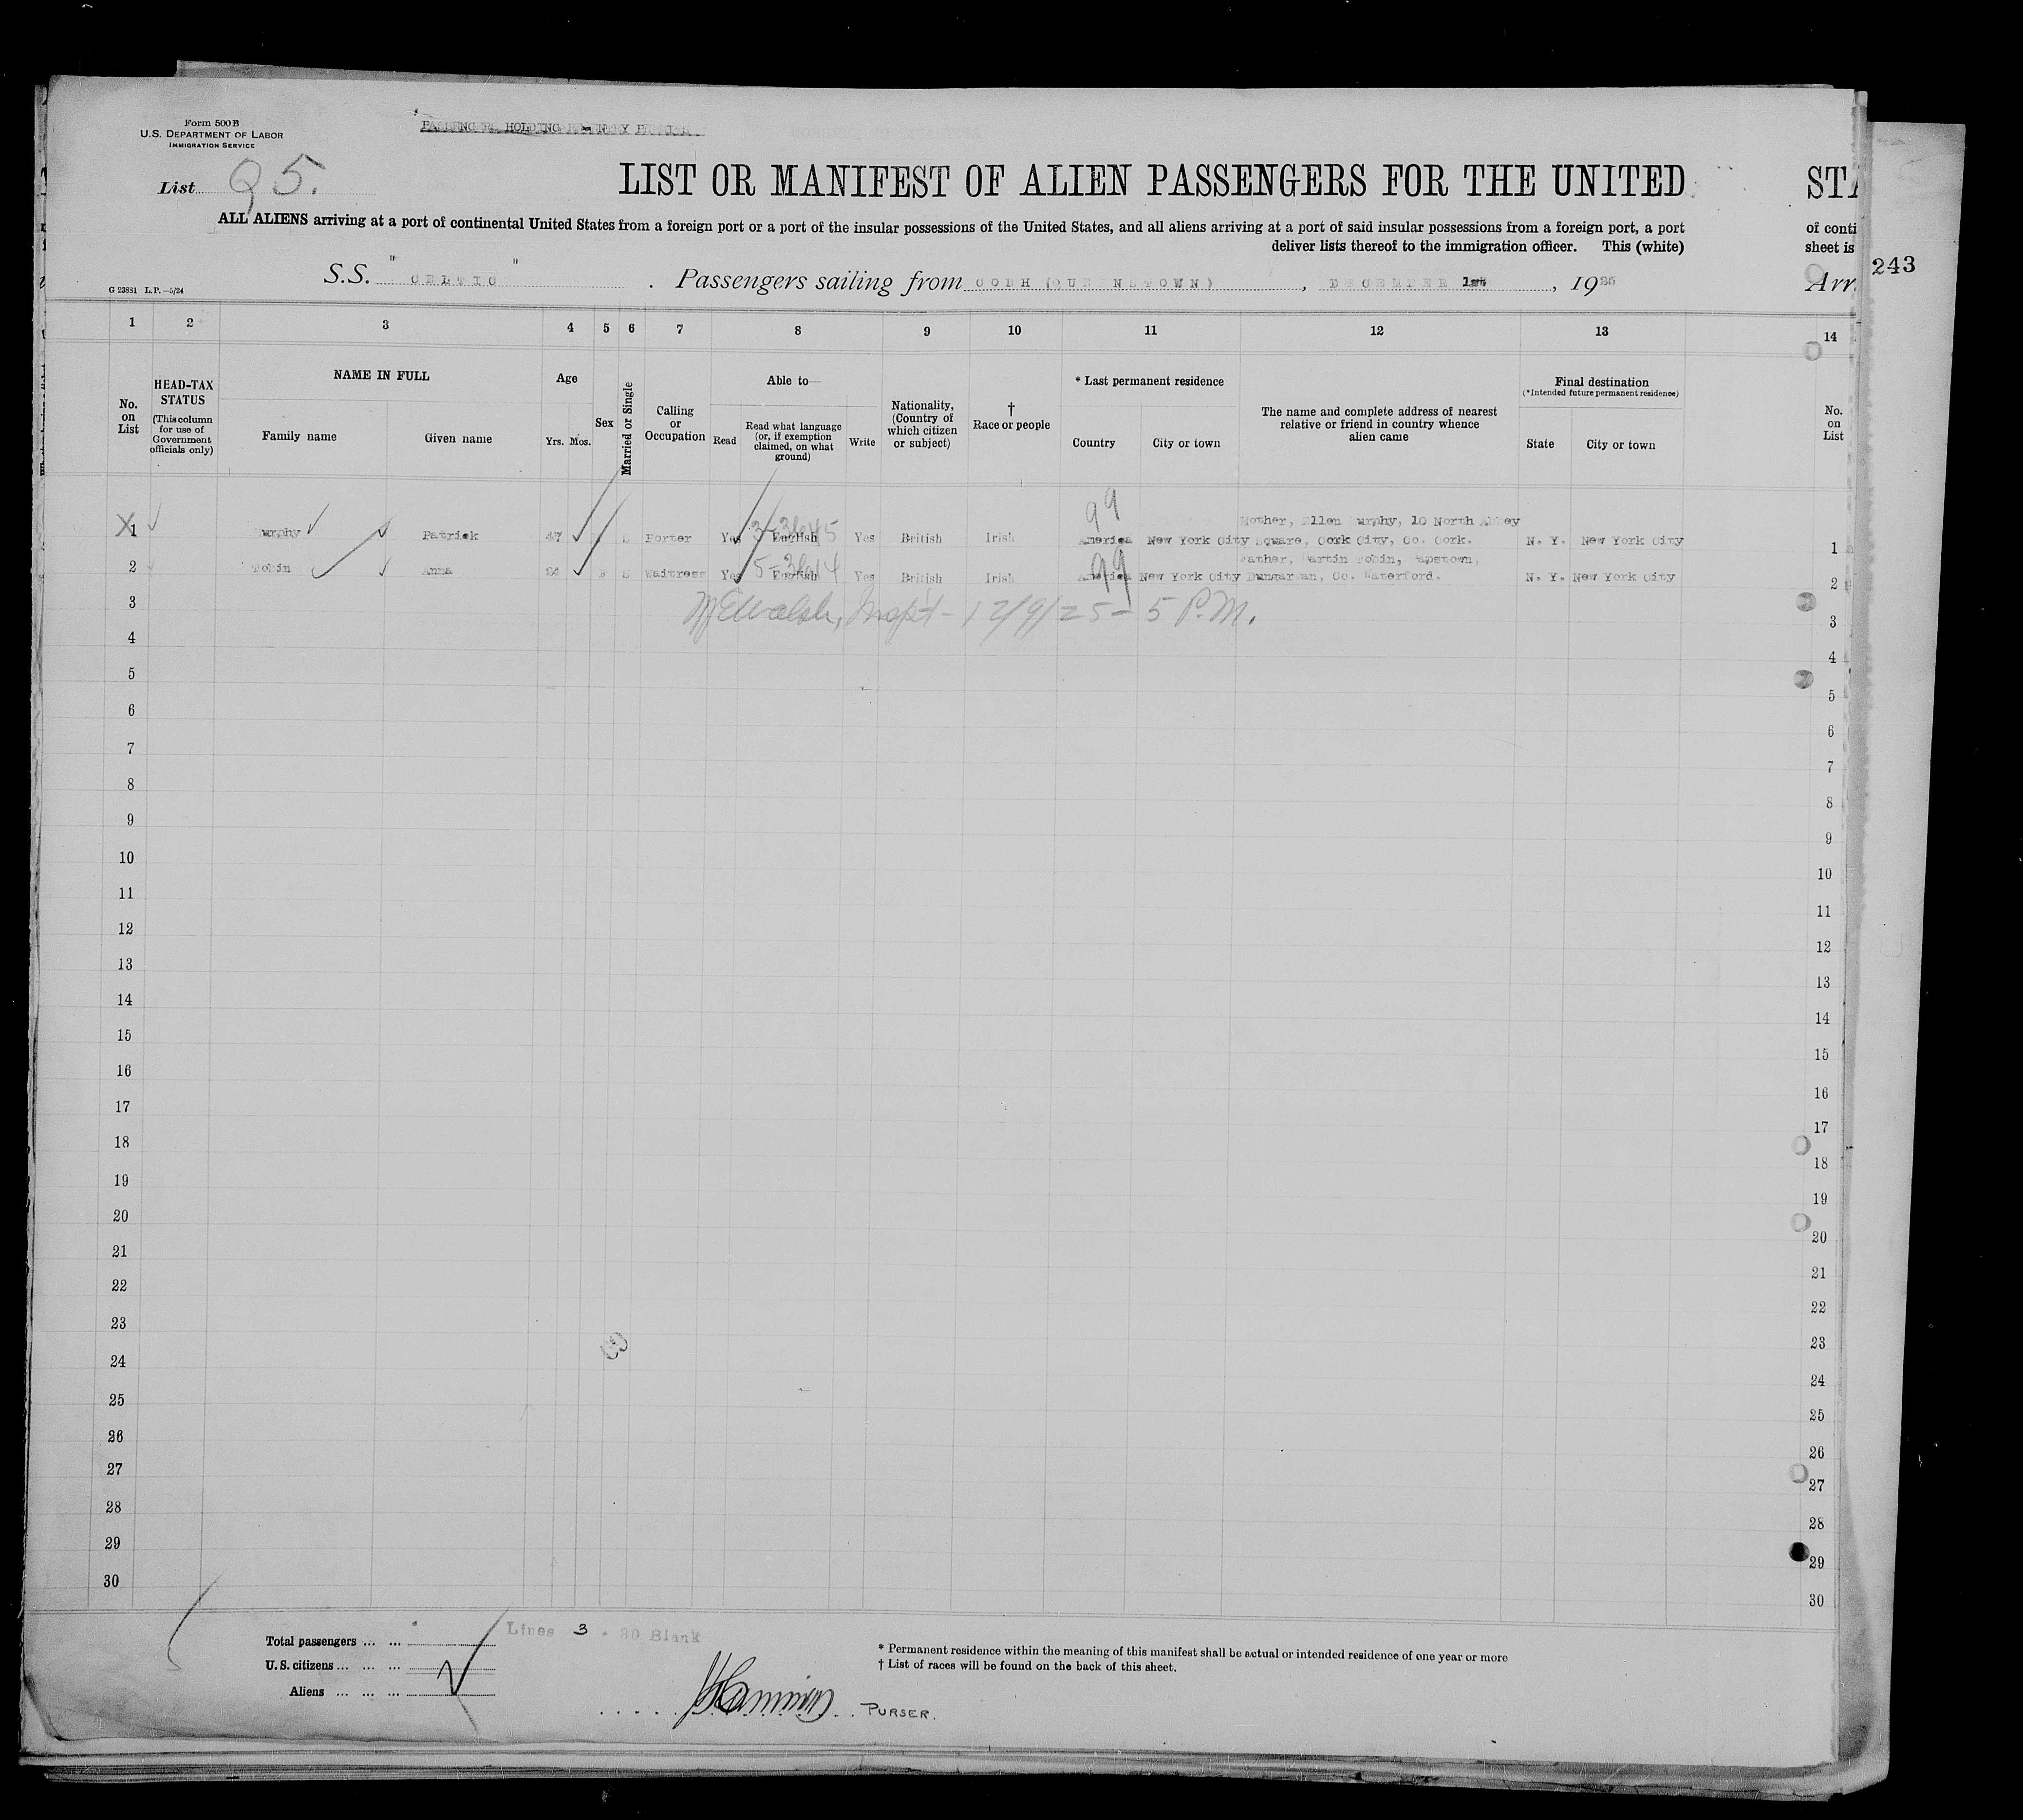 Form 500 B
U.S. DEPARTMENT OF LABOR
IMMIGRATION SERVICE
PASSENGERS HOLDING
List Q5.
LIST OR MANIFEST OF ALIEN PASSENGERS FOR THE UNITED
STA
ALL ALIENS arriving at a port of continental United States from a foreign port or a port of the insular possessions of the United States, and all aliens arriving at a port of said insular possessions from a foreign port, a port
of conti
deliver lists thereof to the immigration officer. This (white)
sheet is
243
G 23881 L.P.—5/24
S.S. "CELTIC". Passengers sailing from COBH (QUEENSTOWN), DECEMBER 1st, 1925
Arr.
1 2 3 4 5 6 7 8 9 10 11 12 13 14
No. on List
HEAD-TAX STATUS (This column for use of Government officials only)
NAME IN FULL
Family name
Given name
Age
Yrs. Mos.
Sex
Married or Single
Calling or Occupation
Able to—
Read
Read what language (or, if exemption claimed, on what ground)
Write
Nationality, (Country of which citizen or subject)
† Race or people
* Last permanent residence
Country
City or town
The name and complete address of nearest relative or friend in country whence alien came
Final destination
(*Intended future permanent residence)
State
City or town
No. on List
99
3-3645
Mother, Ellen Murphy, 10 North Abbey
X 1 Murphy Patrick 47 S Porter Yes English Yes British Irish America New York City Square, Cork City, Co. Cork. N. Y. New York City 1
99
5-3614
Father, Martin Tobin,
2 Tobin Anna 24 F S Waitress Yes English Yes British Irish America New York City Dungarvan, Co. Waterford. N. Y. New York City 2
Walsh, Inspt - 12/9/25 - 5 P.M.
3 3
4 4
5 5
6 6
7 7
8 8
9 9
10 10
11 11
12 12
13 13
14 14
15 15
16 16
17 17
18 18
19 19
20 20
21 21
22 22
23 23
24 24
25 25
26 26
27 27
28 28
29 29
30 30
Lines 3 - 30 Blank
Total passengers ... ...
U.S. citizens ... ... ...
Aliens ... ... ...
* Permanent residence within the meaning of this manifest shall be actual or intended residence of one year or more
† List of races will be found on the back of this sheet.
PURSER.